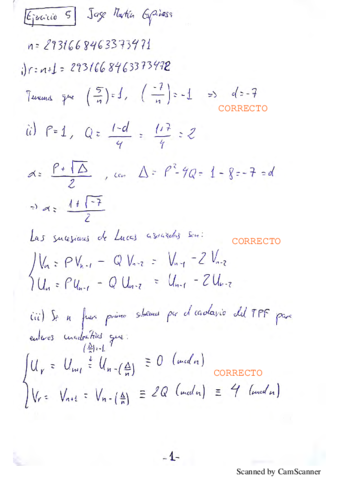 Ejercicio 5 Jorge Martín Espinosa
n = 2931668463373471
i) r = n+1 = 2931668463373472
Tenemos que (5/n) = 1, (-7/n) = -1 ⇒ d = -7
CORRECTO
ii) P = 1, Q = (1-d)/4 = (1+7)/4 = 2
α = (P + √Δ)/2, con Δ = P² - 4Q = 1 - 8 = -7 = d
⇒ α = (1 + √-7)/2
Las sucesiones de Lucas asociadas son:
CORRECTO
Vn = P Vn-1 - Q Vn-2 = Vn-1 - 2 Vn-2
Un = P Un-1 - Q Un-2 = Un-1 - 2 Un-2
iii) Si n fuera primo sabemos por el corolario del TPF para
enteros cuadráticos que:
(Δ/n) = -1
Ur = Un+1 = Un-(Δ/n) ≡ 0 (mod n)
CORRECTO
Vr = Vn+1 = Vn-(Δ/n) ≡ 2Q (mod n) ≡ 4 (mod n)
-1-
Scanned by CamScanner